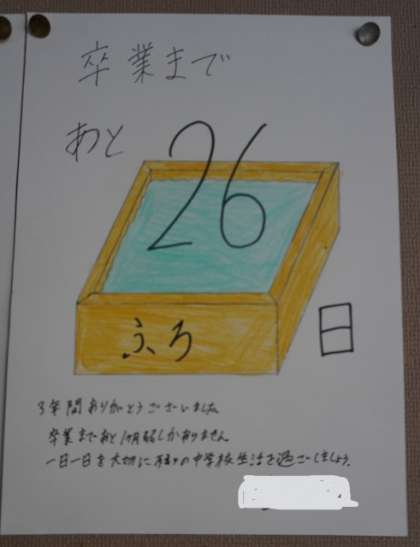 卒業まで
あと 26
ふろ
日
3年間ありがとうございました
卒業まであと1ヶ月弱しかありません
一日一日を大切に の中学校生活を過ごしましょう。